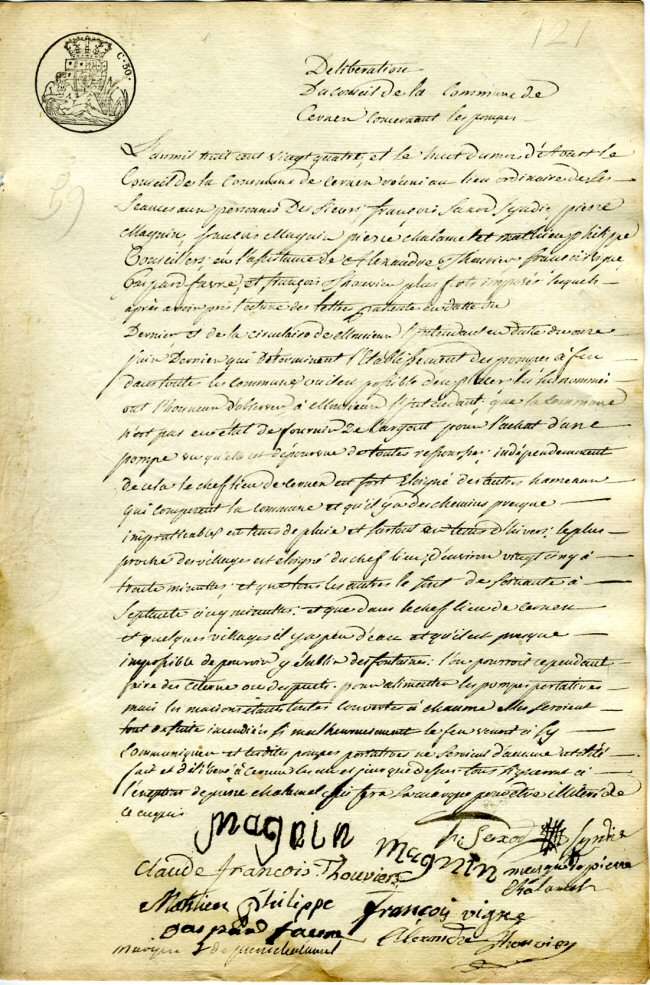 121
C. 50.
Deliberation
Du Conseil de la Commune de
Cernex Concernant les pompes
L'an mil huit cent vingt quatre, et le huit du mois d'Aoust le
Conseil de la Commune de Cernex réuni au lieu ordinaire de ses
Seances aux personnes Des Sieurs françois Saxod Syndic, pierre
Magnin, françois Magnin pierre Chalamet et mathieu Philippe
Conseillers, en l'assistance de Alexandre Thouvier françois Vigne
Gaspard favre, et françois Thouvier plus forts imposés lesquels
après avoir pris lecture des lettres patentes en datte du
Dernier et de la circulaire de Monsieur l'Intendant en date du onze
juin Dernier qui Determinent l'Etablissement des pompes à feu
dans toutes les communes où il est possible d'en placer les susnommés
ont l'honneur d'observer à Monsieur l'Intendant, que la Commune
n'est pas en etat de fournir De l'argent pour l'achat d'une
pompe vu qu'elle est dépourvue de toutes ressources; indépendemment
de cela le chef lieu de Cernex est fort Eloigné des autres hameaux
qui composent la commune et qu'il y a des chemins presque
impraticables en tems de pluie et surtout en tems d'hiver; le plus
proche des villages est eloigné du chef lieu, d'environ vingt cinq à
trente minuttes, et que tous les autres le sont de soixante à
Septante cinq minuttes. et que dans le chef lieu de Cernex
et quelques villages il y a peu d'eau et qu'il est presque
impossible de pouvoir y établir des fontaines. l'on pourroit cependant
faire des Citerne ou des puits pour alimenter les pompes portatives
mais les maisons étant toutes couvertes à chaume elles seroient
tout de suite incendiées si malheureusement le feu venoit à s'y
Communiquer et lesdites pompes portatives ne seroient d'aucune utilité
fait et délibéré à Cernex les an et jour que dessus tous signeront à
l'exception de pierre Chalamet qui fera sa marque pour être illiteré de
ce enquis
Magnin
fr. Saxod Syndic
Magnin
marque de pierre
Chalamet
Claude François Thouvier
Mathieu Philippe
françois vigne
Gaspard favre
Alexandre Thouvier
marque de pierre chalamet